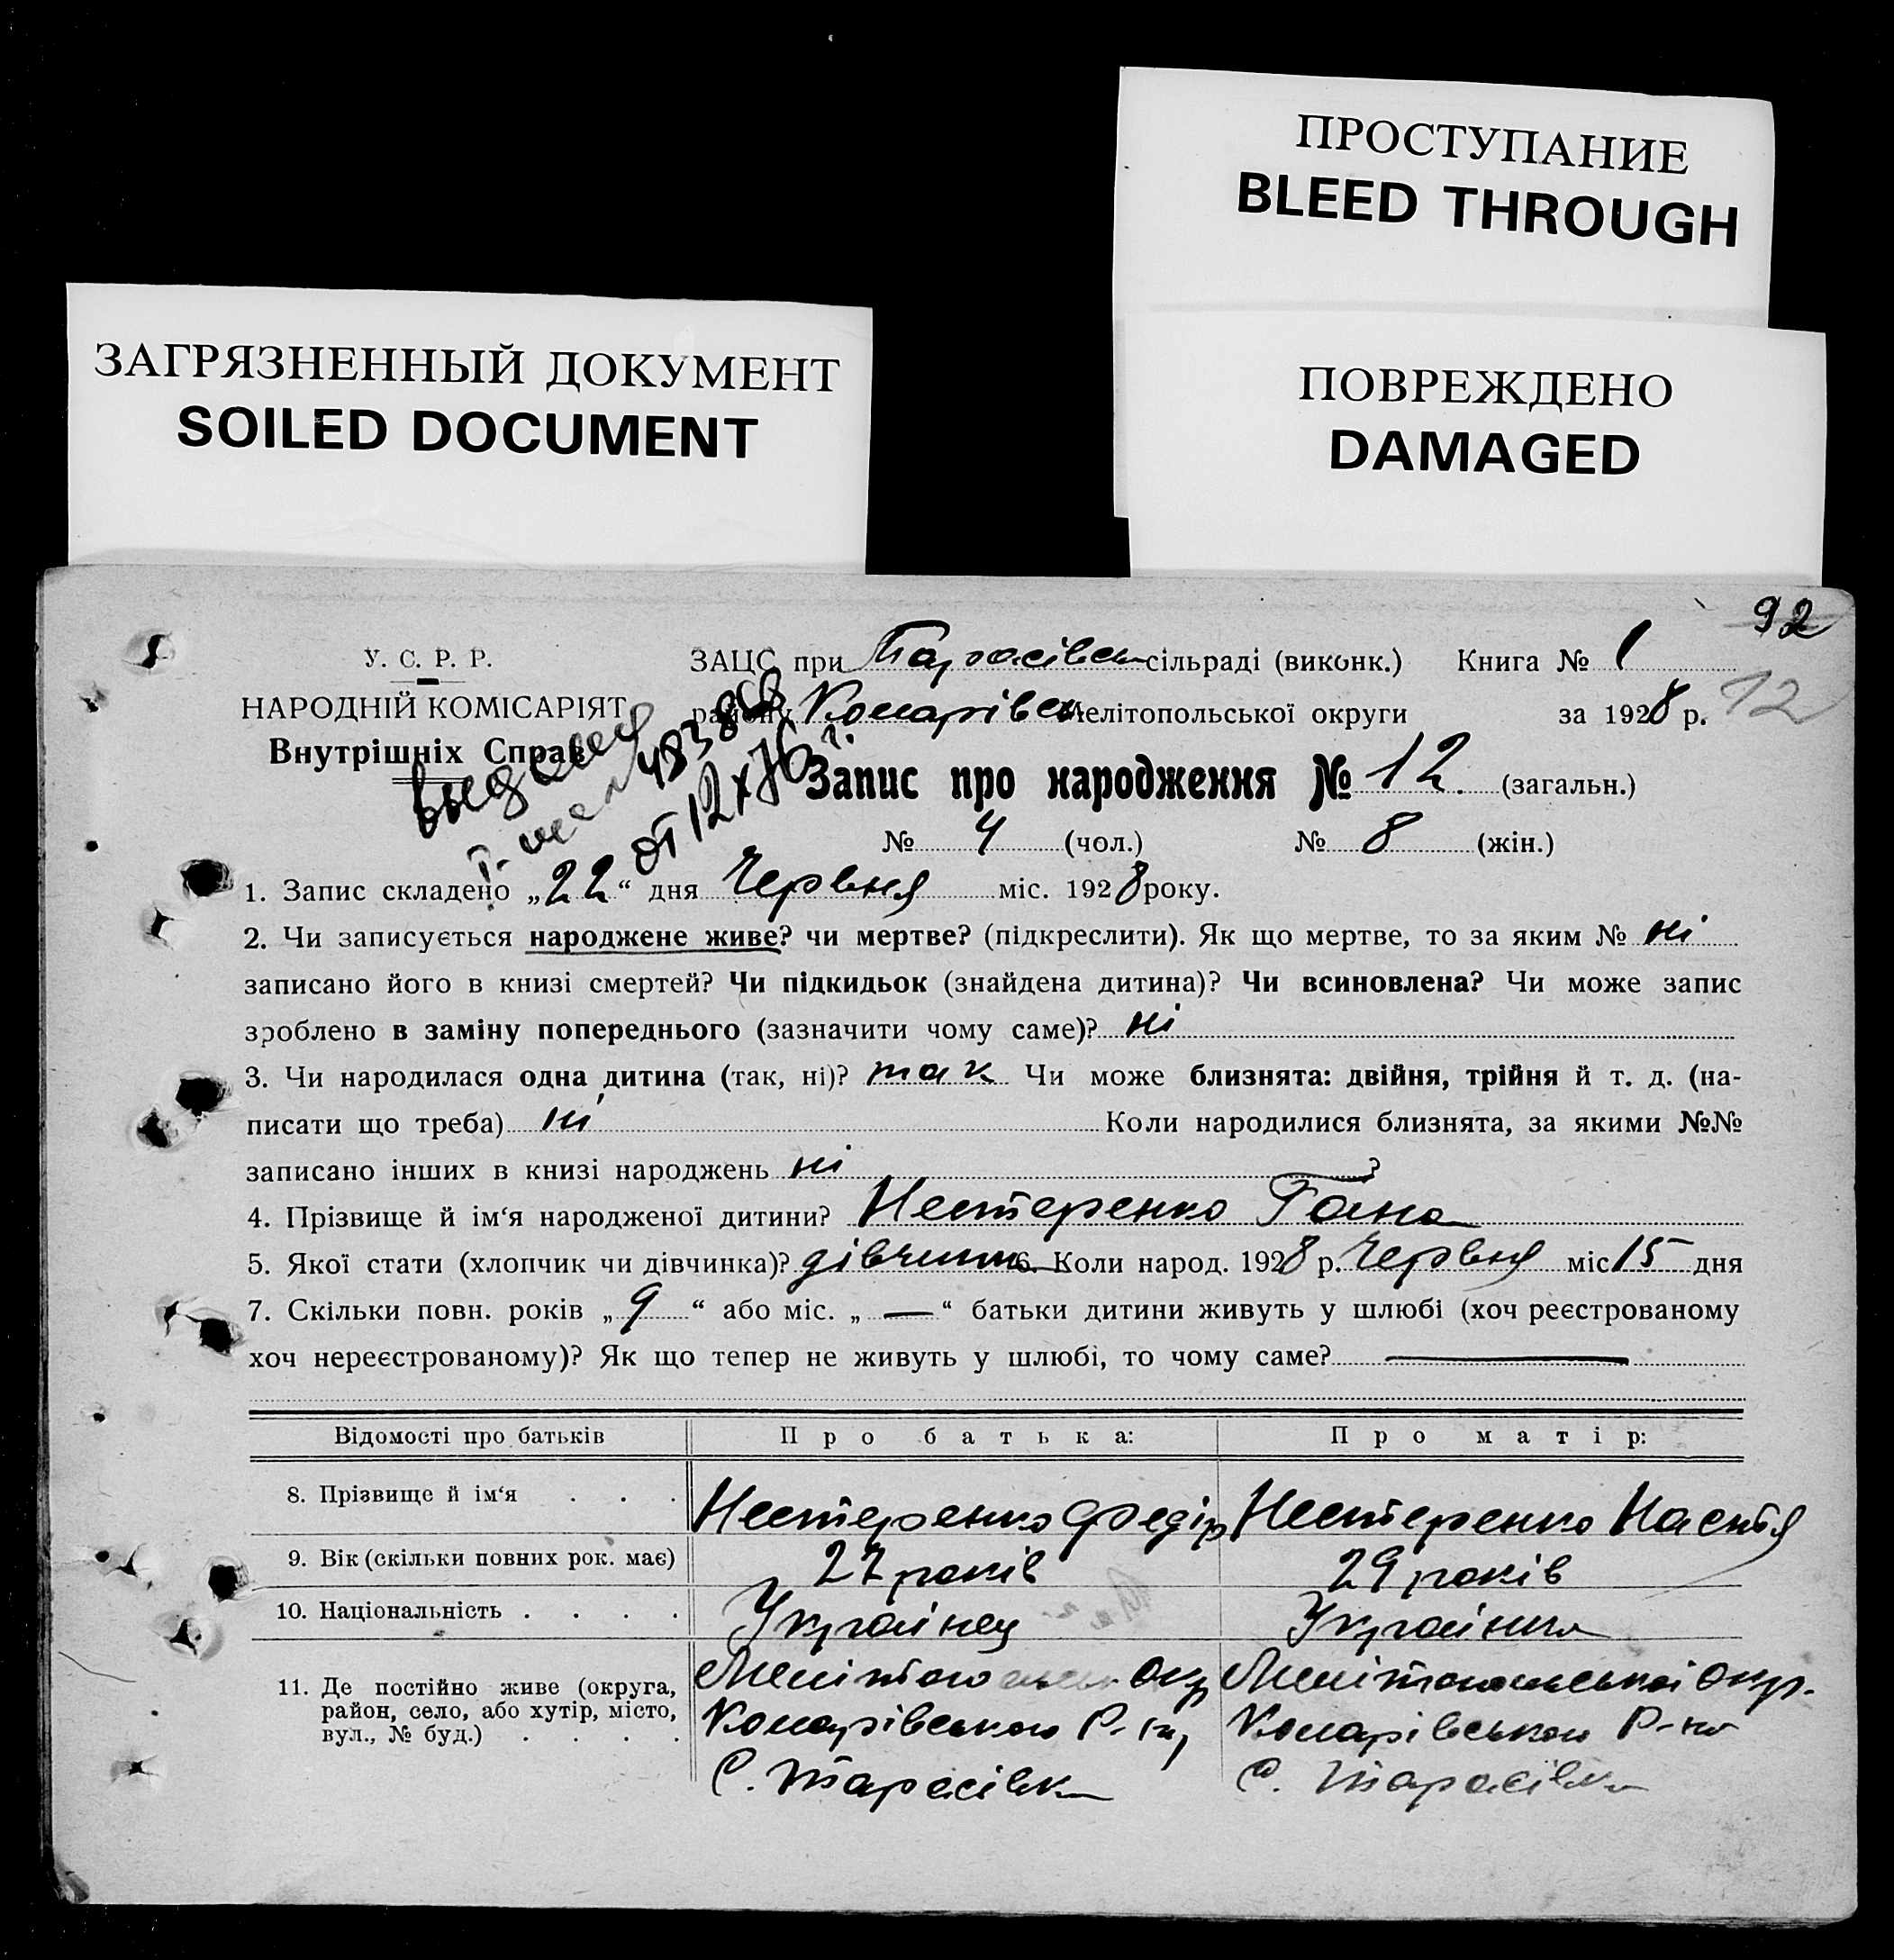 ПРОСТУПАНИЕ
BLEED THROUGH
ЗАГРЯЗНЕННЫЙ ДОКУМЕНТ
SOILED DOCUMENT
ПОВРЕЖДЕНО
DAMAGED
92
У. С. Р. Р.
НАРОДНІЙ КОМІСАРІЯТ
Внутрішніх Справ
ЗАЦС при Тарасівськ сільраді (виконк.) Книга № 1
району Комарівськ Мелітопольської округи за 1928 р. 12
от 12 X 76 г.
Запис про народження № 12. (загальн.)
№ 4 (чол.) № 8 (жін.)
1. Запис складено „22“ дня Червня міс. 1928 року.
2. Чи записується народжене живе? чи мертве? (підкреслити). Як що мертве, то за яким № ні
записано його в книзі смертей? Чи підкидьок (знайдена дитина)? Чи всиновлена? Чи може запис
зроблено в заміну попереднього (зазначити чому саме)? ні
3. Чи народилася одна дитина (так, ні)? так Чи може близнята: двійня, трійня й т. д. (на-
писати що треба) ні Коли народилися близнята, за якими №№
записано інших в книзі народжень ні ?
4. Прізвище й ім‘я народженої дитини? Нестеренко Гана
5. Якої стати (хлопчик чи дівчинка)? дівчинка 6. Коли народ. 1928 р. Червня міс 15 дня
7. Скільки повн. років „9“ або міс. „—“ батьки дитини живуть у шлюбі (хоч реєстрованому
хоч нереєстрованому)? Як що тепер не живуть у шлюбі, то чому саме? —
Відомості про батьків Про батька: Про матір:
8. Прізвище й ім‘я . . . Нестеренко Федір Нестеренко Настя
9. Вік (скільки повних рок. має) 27 років 29 років
10. Національність . . . . Українец Українка
11. Де постійно живе (округа,
район, село, або хутір, місто,
вул., № буд.) . . . .
Мелітопольськ Окр Мелітопольської Окр.
Комарівського Р-ну Комарівського Р-ну
С. Тарасівка С. Тарасівка